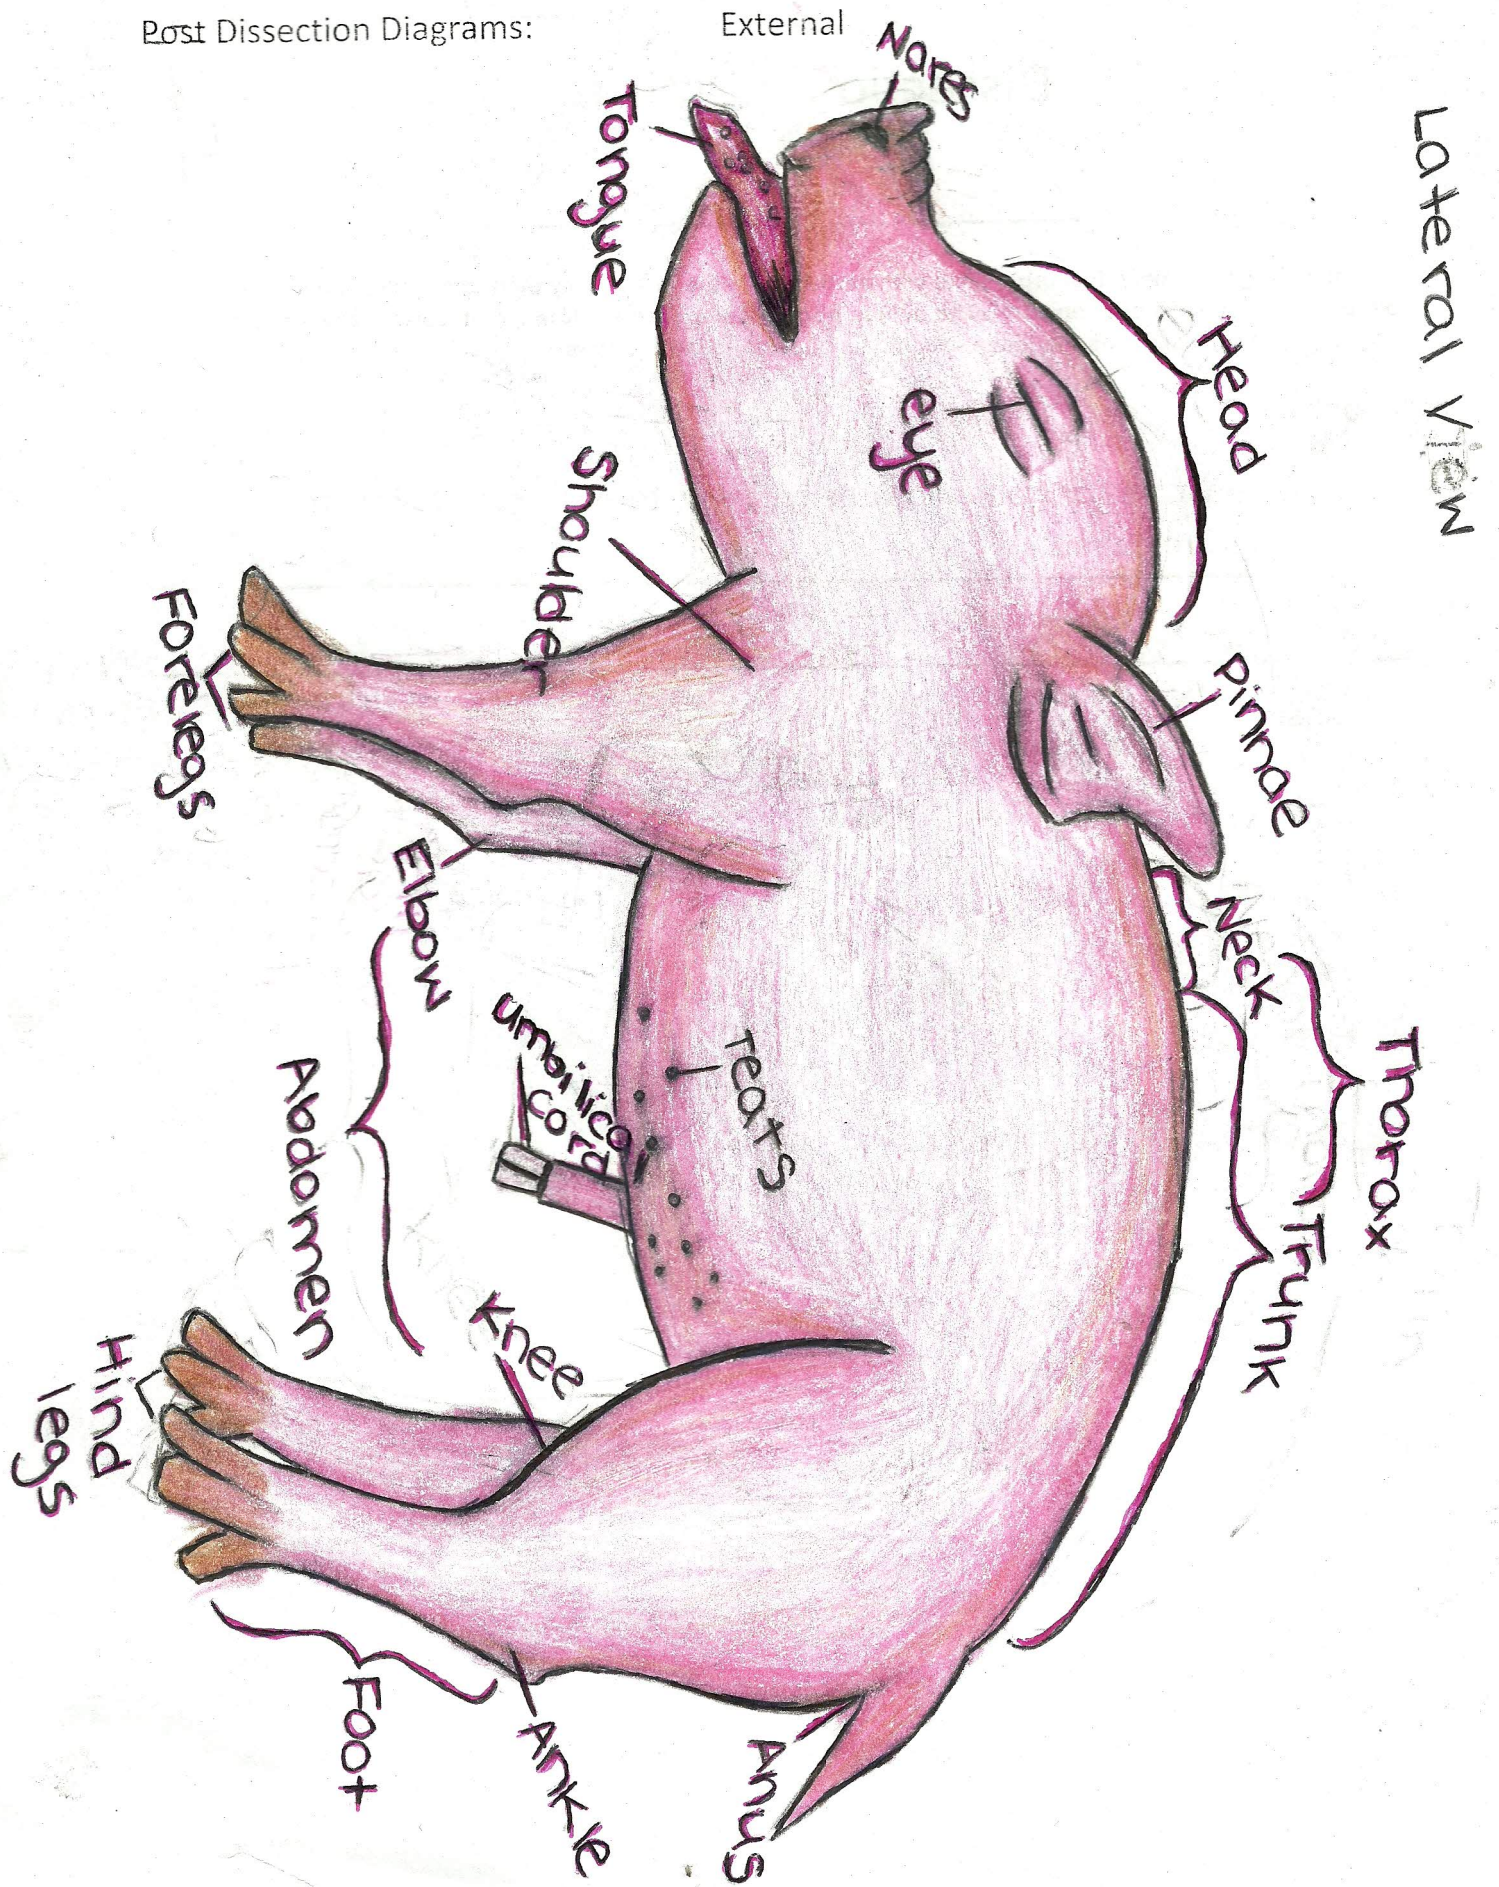 Post Dissection Diagrams:
External
Lateral View
Nares
Tongue
Head
eye
Shoulder
Pinnae
Forelegs
Neck
Elbow
Thorax
Teats
umbilical
cord
Trunk
Abdomen
Knee
Hind
legs
Foot
Ankle
Anus